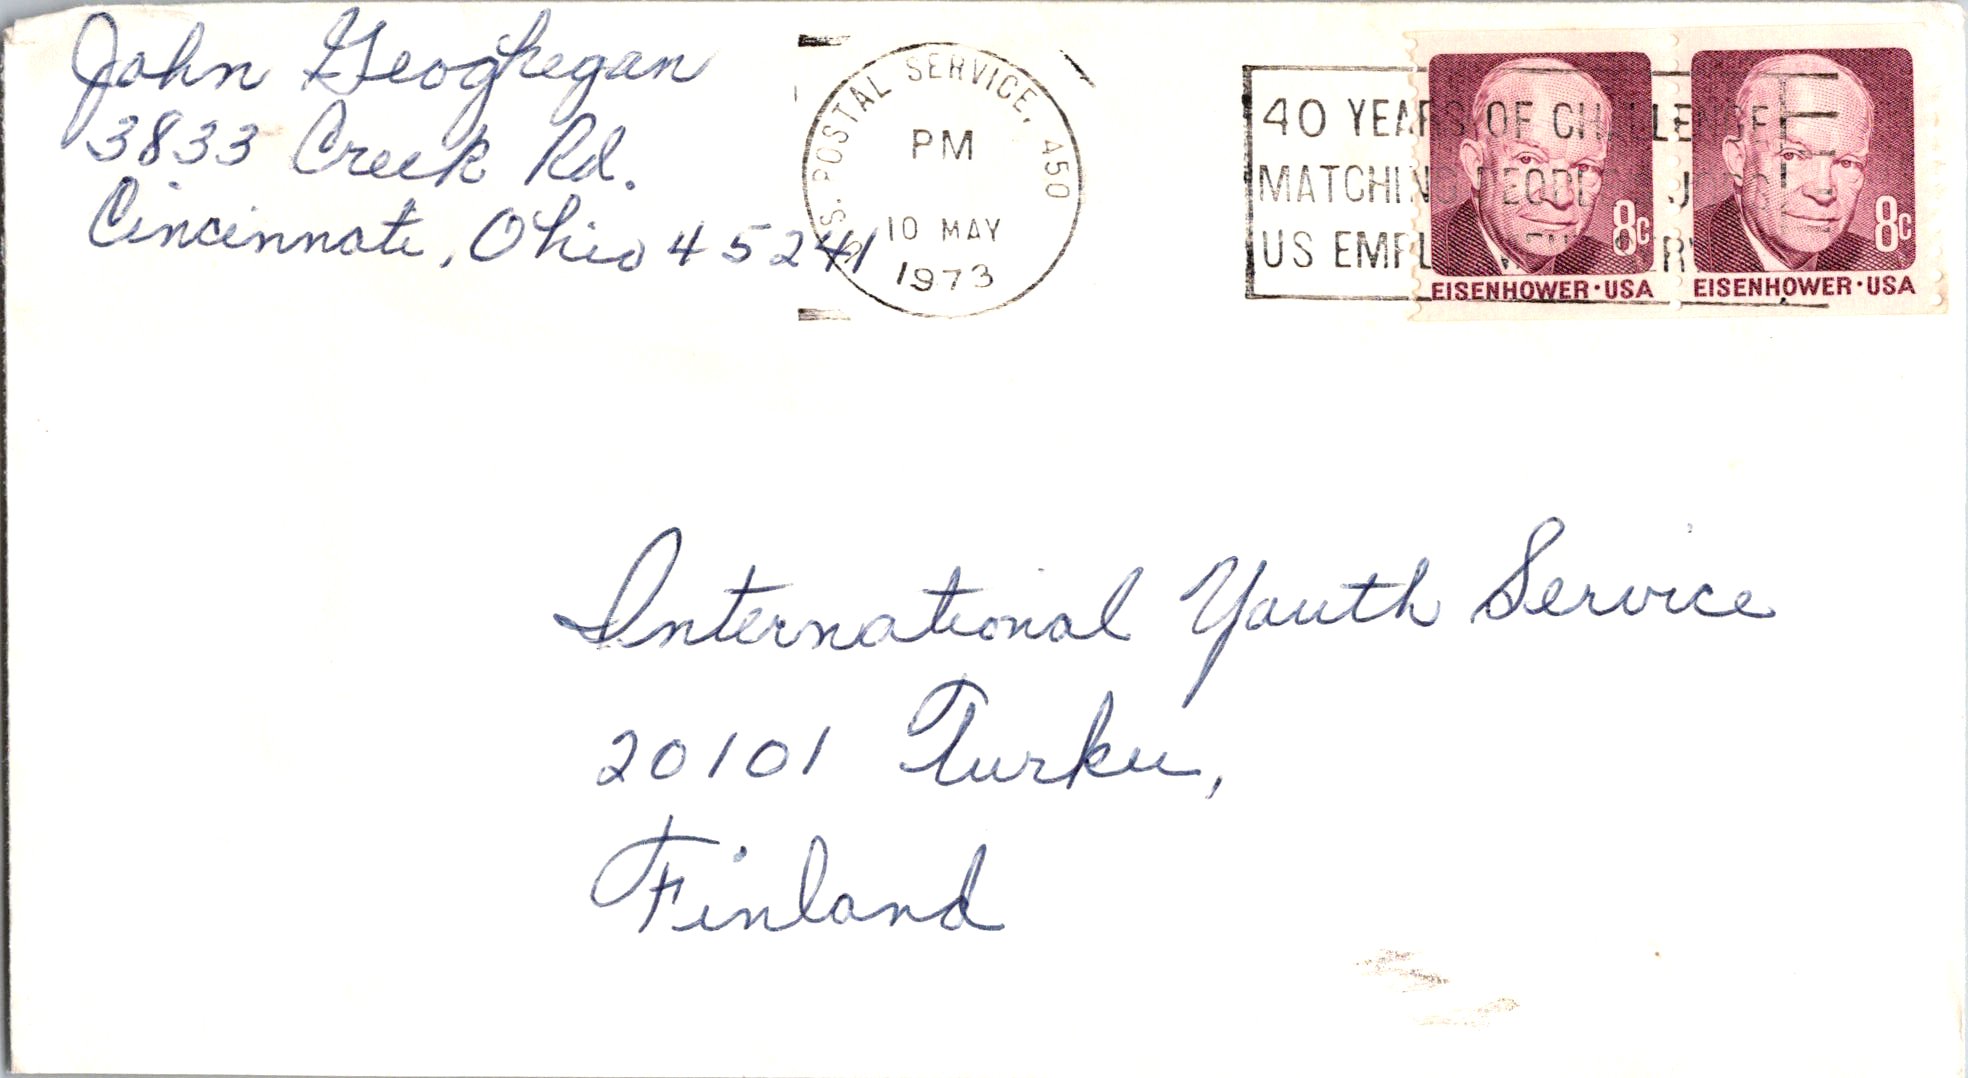 John Geoghegan
3833 Creek Rd.
Cincinnati, Ohio 45241
U.S. POSTAL SERVICE, 450
PM
10 MAY
1973
40 YEARS OF CHALLENGE
MATCHING PEOPLE JOBS
US EMPLOYMENT SERV
8c
EISENHOWER · USA
8c
EISENHOWER · USA
International Youth Service
20101 Turku,
Finland